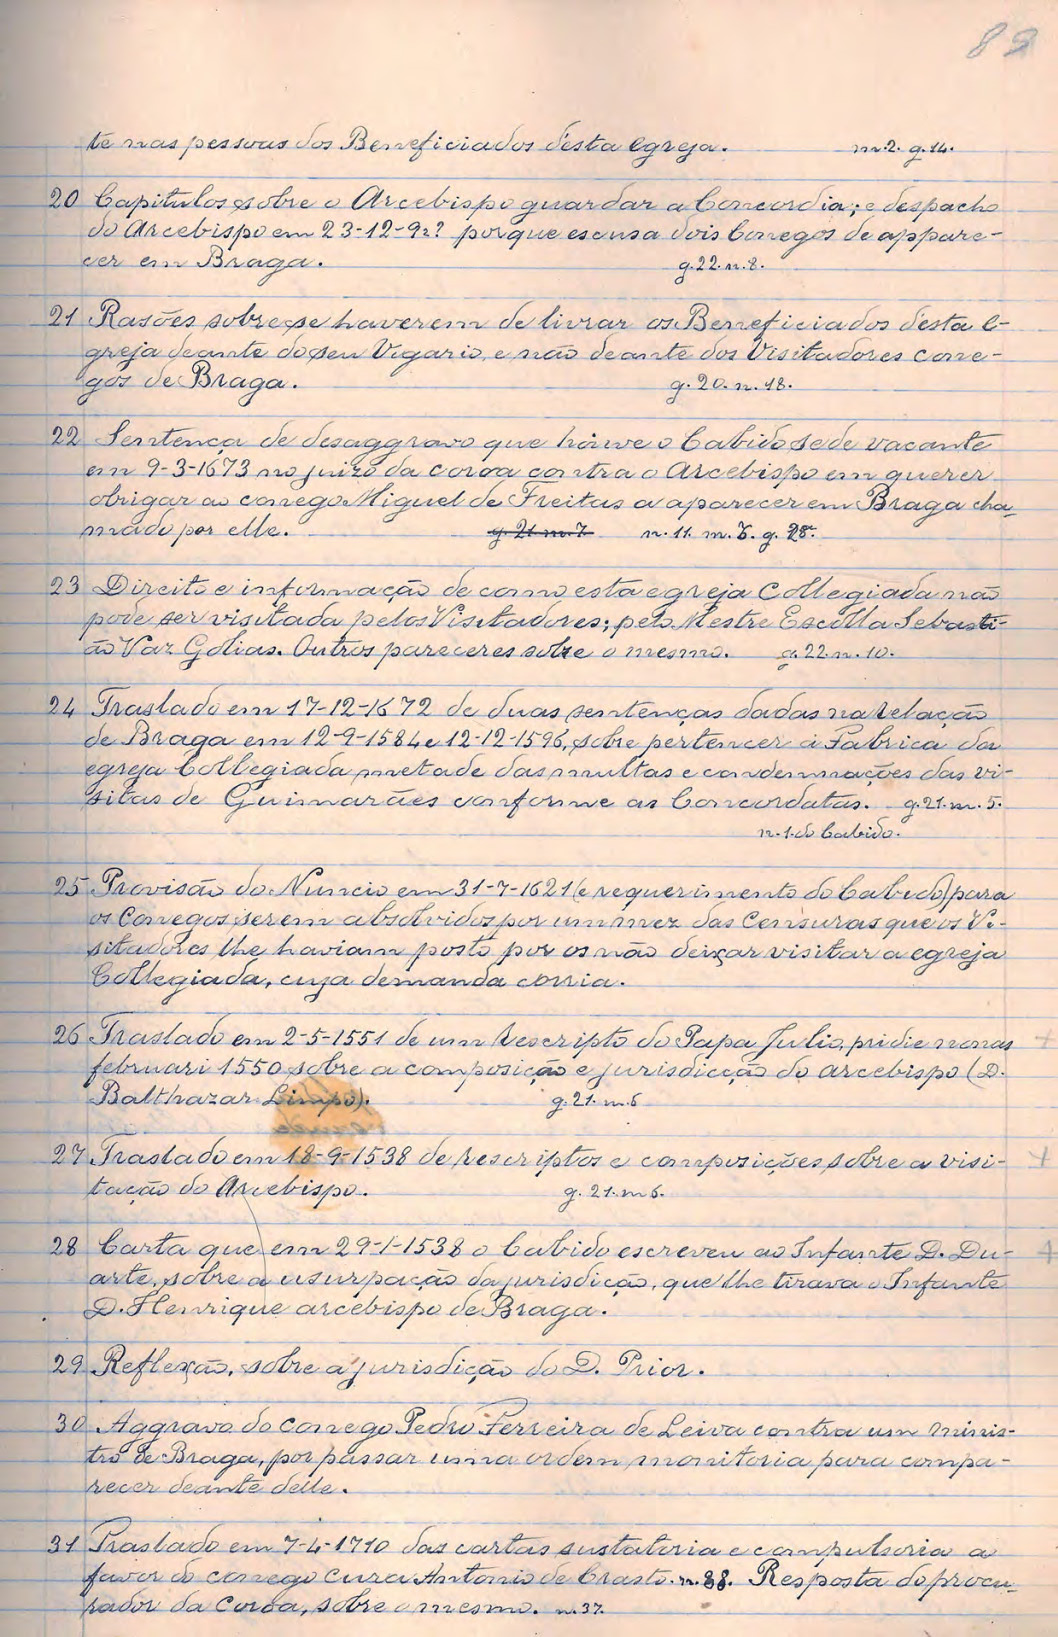 89
te nas pessoas dos Beneficiados d'esta egreja. m. 2. g. 14.
20 Capitulos sobre o Arcebispo guardar a Concordia; e despacho
do Arcebispo em 23-12-9?? porque escusa dois Conegos de appare-
cer em Braga. g. 22. n. 8.
21 Rasões sobre se haverem de livrar os Beneficiados d'esta E-
greja deante do seu Vigario, e não deante dos Visitadores cone-
gos de Braga. g. 20. n. 18.
22 Sentença de desaggravo que houve o Cabido sede vacante
em 9-3-1673 no juizo da coroa contra o Arcebispo em querer
obrigar ao conego Miguel de Freitas a aparecer em Braga cha-
mado por elle. g. 21 m. 7 n. 11. m. 6. g. 28.
23 Direito e informação de como esta egreja Collegiada não
pode ser visitada pelos Visitadores; pelo Mestre Escolla Sebasti-
ão Vaz Golias. Outros pareceres sobre o mesmo. g. 22. n. 10.
24 Traslado em 17-12-1672 de duas sentenças dadas na relação
de Braga em 12-9-1584 e 12-12-1596, sobre pertencer á Fabrica da
egreja Collegiada metade das multas e condemnações das vi-
sitas de Guimarães conforme as Concordatas. g. 21. m. 5.
n. 1. do Cabido.
25 Provisão do Nuncio em 31-7-1621 (e requerimento do Cabido) para
os Conegos serem absolvidos por um mez das Censuras que os Vi-
sitadores lhe haviam posto por os não deixar visitar a egreja
Collegiada, cuja demanda corria.
26 Traslado em 2-5-1551 de um Rescripto do Papa Julio, pridie nonas
februari 1550 sobre a composição e jurisdicção do arcebispo (D.
Balthazar Limpo). g. 21. m. 6
27 Traslado em 18-9-1538 de rescriptos e composições sobre a visi-
tação do Arcebispo. g. 21. m 6.
28 Carta que em 29-1-1538 o Cabido escreveu ao Infante D. Du-
arte, sobre a usurpação da jurisdição, que lhe tirava o Infante
D. Henrique arcebispo de Braga.
29 Reflexão, sobre a jurisdição do D. Prior.
30 Aggravo do conego Pedro Ferreira de Leiva contra um minis-
tro de Braga, por passar uma ordem monitoria para compa-
recer deante delle.
31 Traslado em 7-4-1710 das cartas sustatoria e compulsoria a
favor do conego cura Antonio de Crasto. n. 38. Resposta do procu-
rador da Coroa, sobre o mesmo. n. 37.